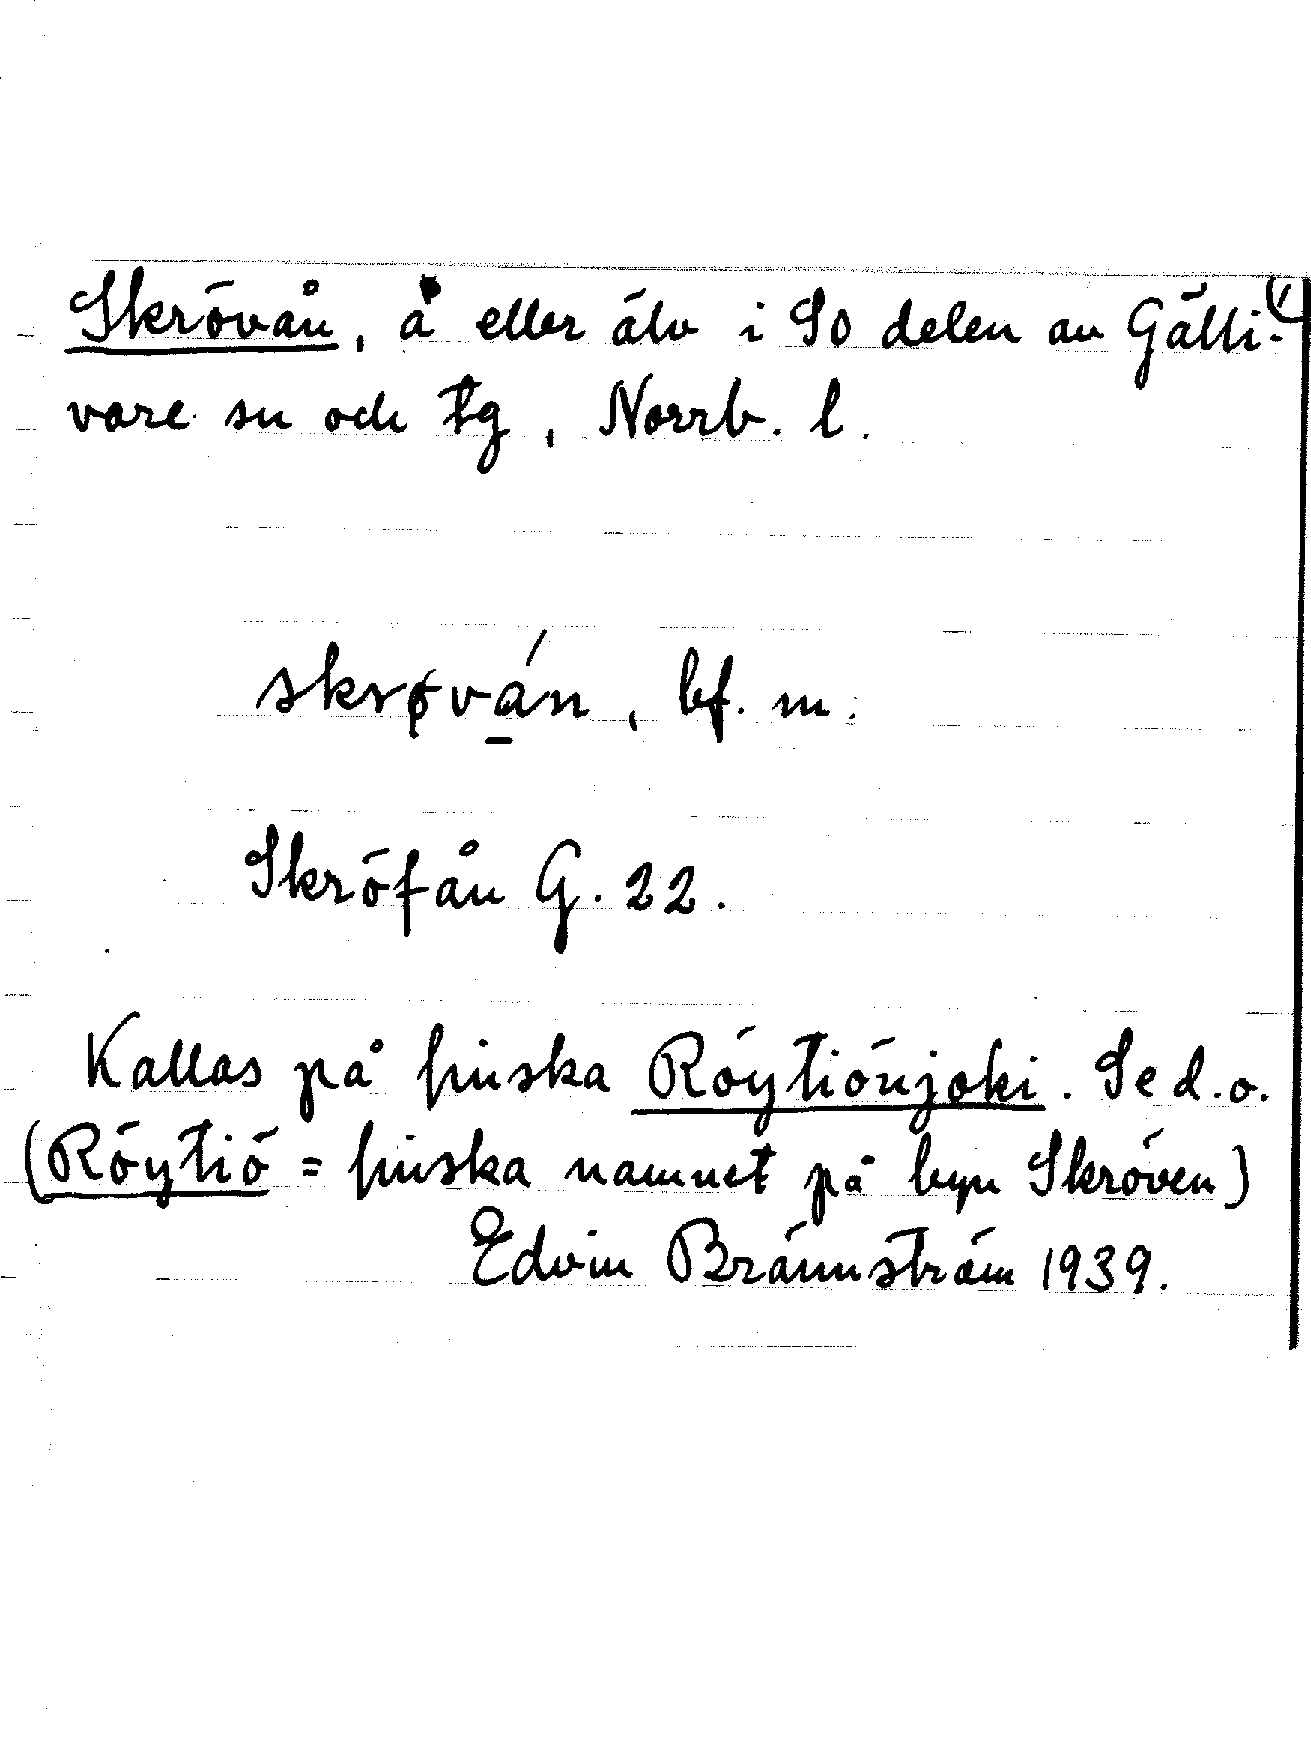 Skrövån, å eller älv i So delen av Gälli-
vare sn och tg, Norrb. l.
skrøván, bf. m.
Skröfån G. 22.
Kallas på finska Röytiönjoki. Se d.o.
(Röytiö = finska namnet på byn Skröven)
Edvin Brännström 1939.